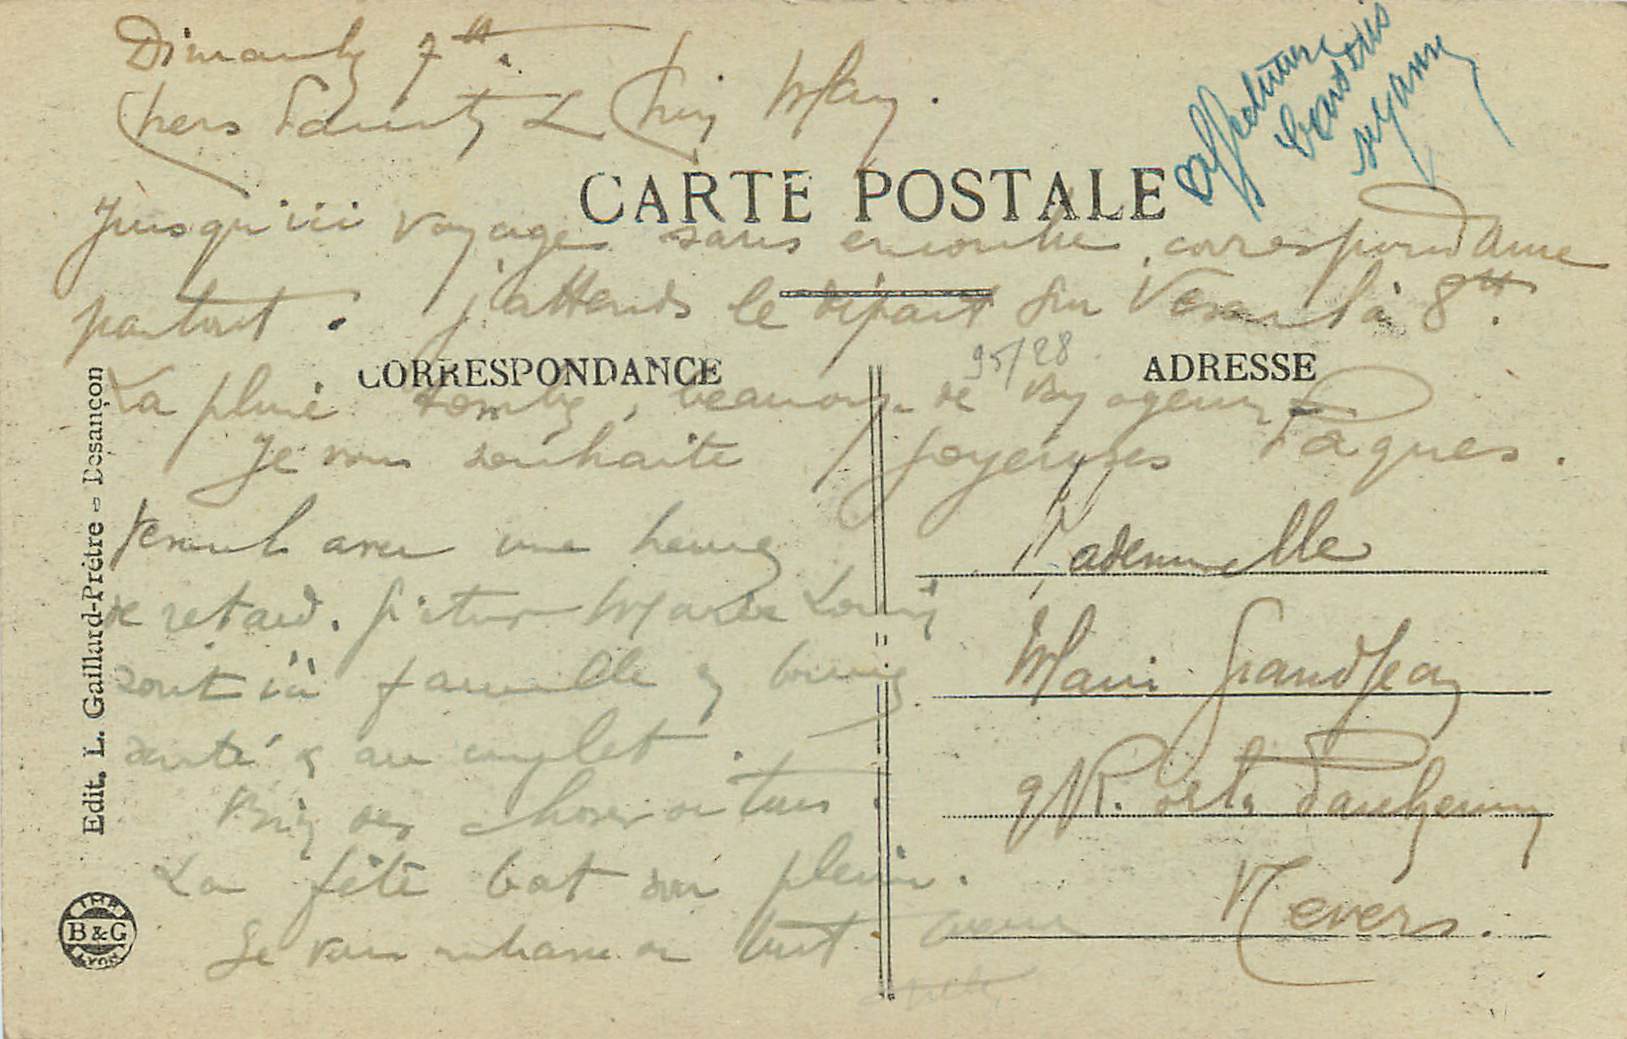 Dimanche 7 h.
Chers Parents & Chère May.
Affectueux
baisers
CARTE POSTALE
Jusqu'ici voyage sans encombre, correspondance
partout. j'attends le départ sur Vesoul à 8 h.
95/28
CORRESPONDANCE
ADRESSE
La pluie tombe, beaucoup de voyageurs
Je vous souhaite joyeuses Pâques.
Vesoul avec une heure
de retard. Victor Marie Louise
sont ici famille en bonne
santé & au complet.
Bien des choses de tous.
La fête bat son plein.
Je vous embrasse tout
Mademoiselle
Marie Grandjean
9 R. de la
Nevers.
Edit. L. Gaillard-Prêtre - Besançon
IMP. B & G LYON